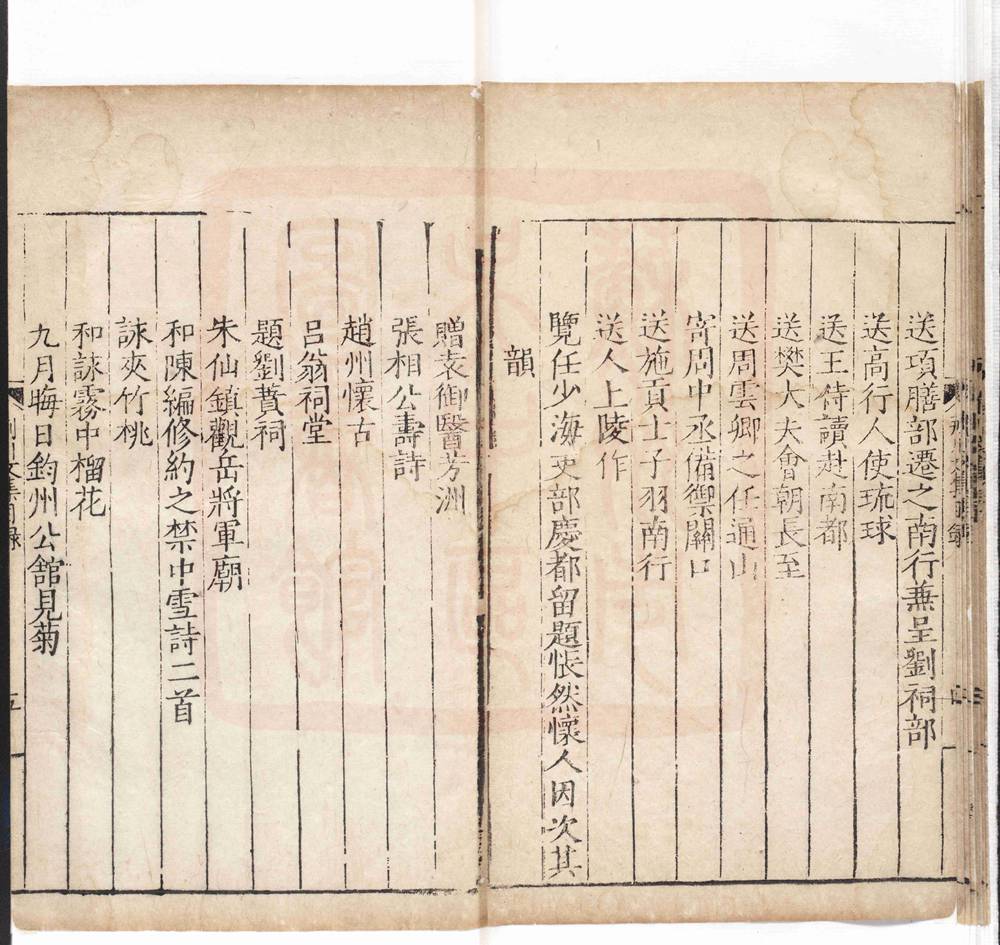 送項膳部遷之南行兼呈劉祠部
送高行人使琉球
送王侍讀赴南都
送樊大夫會朝長至
送周雲卿之任通山
寄周中丞備禦關口
送施貢士子羽南行
送人上陵作
覽任少海吏部慶都留題悵然懷人因次其
韻
贈袁御醫芳洲
張相公壽詩
趙州懷古
呂翁祠堂
題劉蕡祠
朱仙鎮觀岳將軍廟
和陳編修約之禁中雪詩二首
詠夾竹桃
和詠霧中榴花
九月晦日鈞州公館見菊